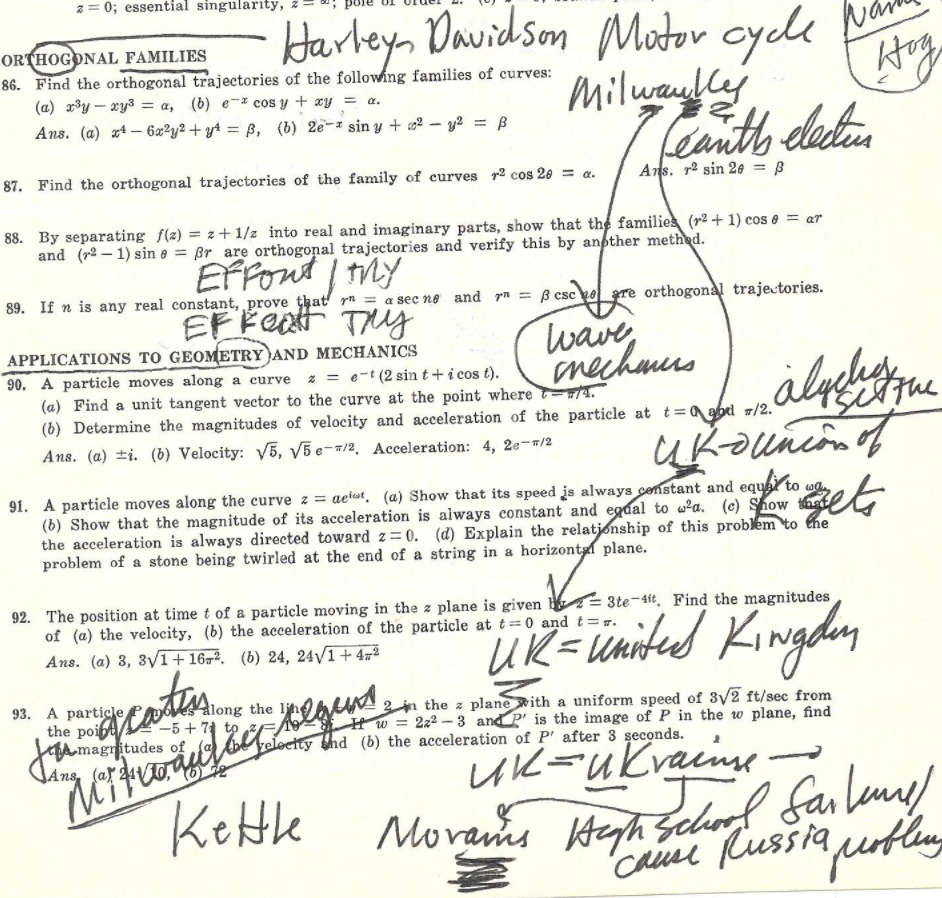 z = 0; essential singularity, z = ∞; pole of order 2.
Harley Davidson Motor cycle
Name
Hog
ORTHOGONAL FAMILIES
86. Find the orthogonal trajectories of the following families of curves:
(a) x³y − xy³ = α, (b) e⁻ˣ cos y + xy = α.
Ans. (a) x⁴ − 6x²y² + y⁴ = β, (b) 2e⁻ˣ sin y + x² − y² = β
Milwaukee
87. Find the orthogonal trajectories of the family of curves r² cos 2θ = α. Ans. r² sin 2θ = β
88. By separating f(z) = z + 1/z into real and imaginary parts, show that the families (r² + 1) cos θ = αr
and (r² − 1) sin θ = βr are orthogonal trajectories and verify this by another method.
EFFort / Try
89. If n is any real constant, prove that rⁿ = α sec nθ and rⁿ = β csc nθ are orthogonal trajectories.
EFFort Try
wave
mechanics
APPLICATIONS TO GEOMETRY AND MECHANICS
90. A particle moves along a curve z = e⁻ᵗ (2 sin t + i cos t).
(a) Find a unit tangent vector to the curve at the point where t = π/4.
(b) Determine the magnitudes of velocity and acceleration of the particle at t = 0 and π/2.
Ans. (a) ±i. (b) Velocity: √5, √5 e^−π/2. Acceleration: 4, 2e^−π/2
UK union of
K sets
91. A particle moves along the curve z = ae^iωt. (a) Show that its speed is always constant and equal to ωa.
(b) Show that the magnitude of its acceleration is always constant and equal to ω²a. (c) Show that
the acceleration is always directed toward z = 0. (d) Explain the relationship of this problem to the
problem of a stone being twirled at the end of a string in a horizontal plane.
92. The position at time t of a particle moving in the z plane is given by z = 3te^−4it. Find the magnitudes
of (a) the velocity, (b) the acceleration of the particle at t = 0 and t = π.
Ans. (a) 3, 3√1 + 16π². (b) 24, 24√1 + 4π²
UK = United Kingdom
93. A particle P moves along the line = 2 in the z plane with a uniform speed of 3√2 ft/sec from
the point z = −5 + 7i to z = 10 − 8i. If w = 2z² − 3 and P′ is the image of P in the w plane, find
the magnitudes of (a) the velocity and (b) the acceleration of P′ after 3 seconds.
Ans. (a) 24√10, (b) 72
greater
Milwaukee
UK = UKraine
Kettle Moraine High School failure /
cause Russia problem